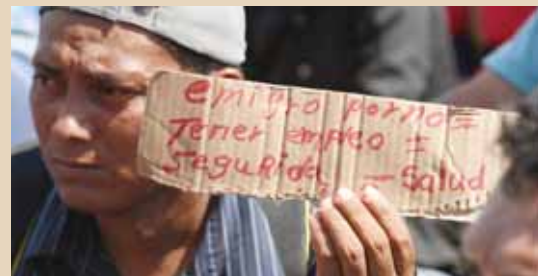 emigro porno=
Tener empleo =
SeguRida — Salud